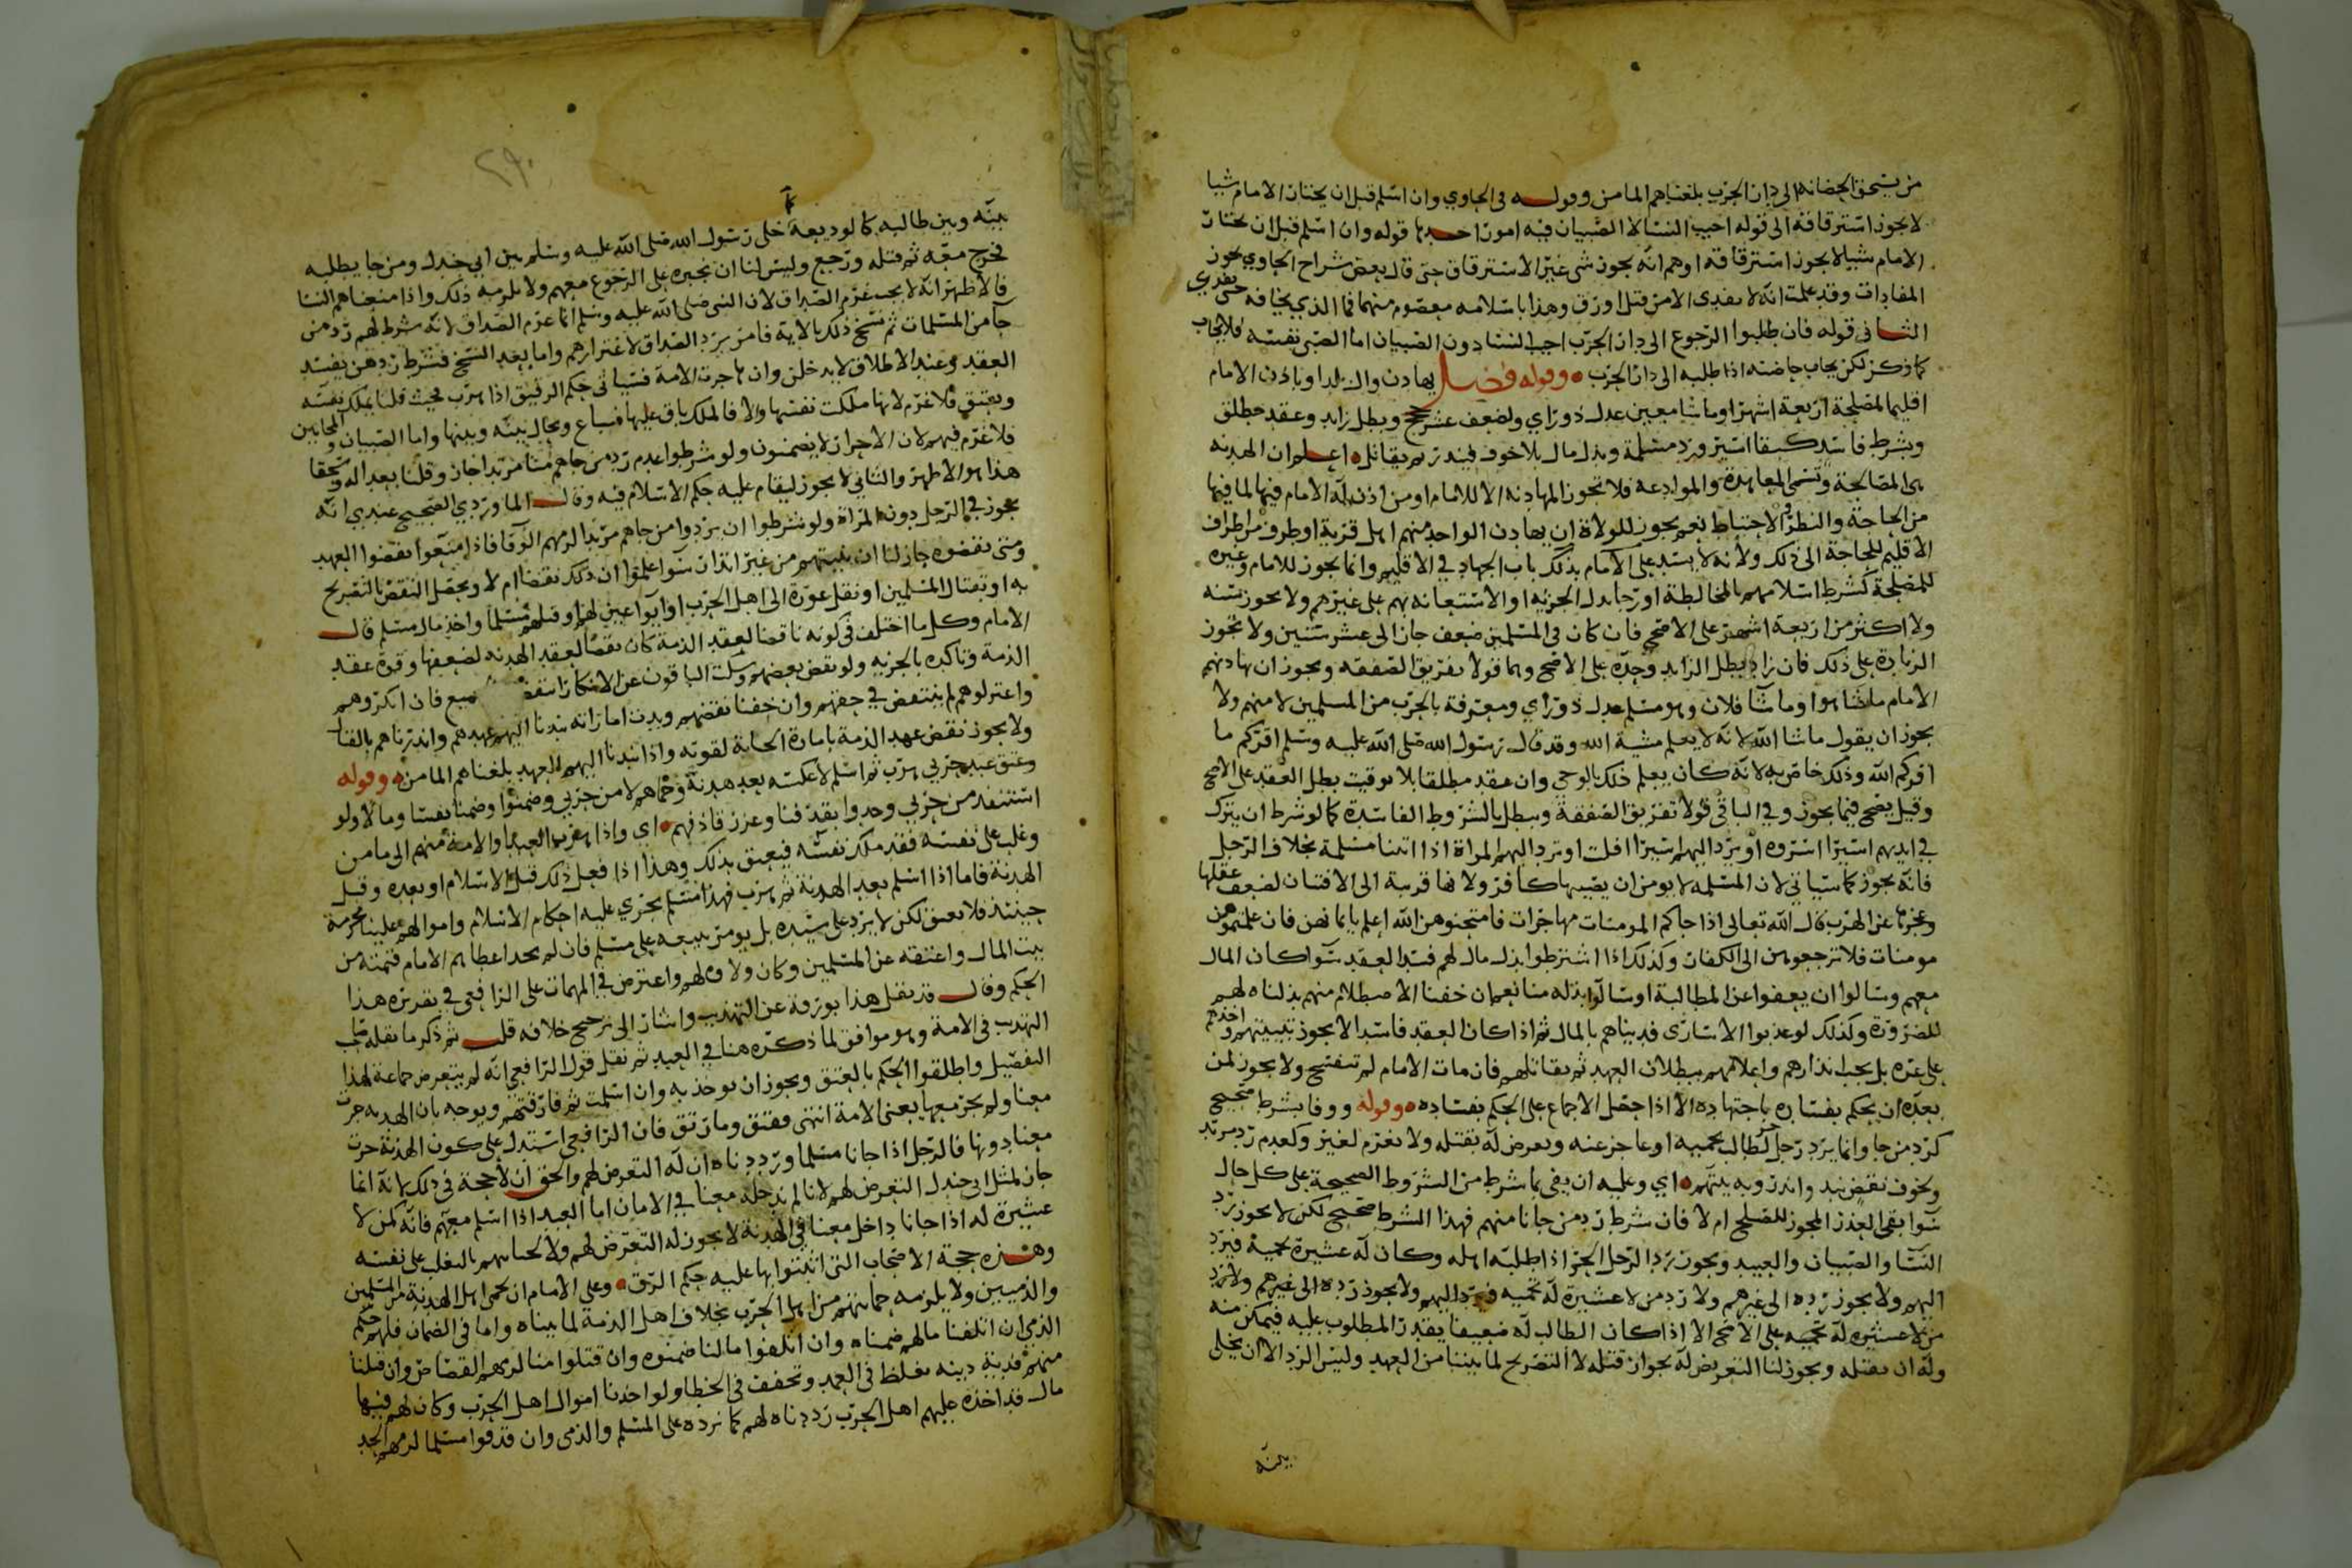 من يستحق الحضانه الى دار الحرب بلغناهم المامن وقوله في الحاوي وان اسلم قبل ان يختار الامام شيا
لا يجوز استرقاقه الى قوله اجيب النسا لا الصبيان فيه امور احدها قوله وان اسلم قبل ان يختار
الامام شيا لا يجوز استرقاقه اوهم انه يجوز شي غير الاسترقاق حتى قال بعض شراح الحاوي يجوز
المفادات وقد علمت انه لا يفدى الا من قتل او رق وهذا باسلامه معصوم منهما فما الذي يخافه حتى يفدي
الثاني قوله فان طلبوا الرجوع الى دار الحرب اجيب النسا دون الصبيان اما الصبي نفسه فلا يجاب
كما ذكر لكن يجاب حاضنته اذا طلبه الى دار الحرب وقوله فصل يهادن وال بلدا وباذن الامام
اقليما لمصلحة اربعة اشهر او ما شا معين عدل ذو راي ولضعف عشر حجج وبطل زايد وعقد مطلق
وبشرط فاسد كبقا اسير ورد مسلمة وبذل مال بلا خوف فينذر ثم يقاتل اعلم ان الهدنه
هي المصالحة وتسمى المعاهدة والموادعة فلا تجوز المهادنه الا للامام او من اذن له الامام فيها لما فيها
من الحاجة والنظر في الاحتياط نعم يجوز للولاة ان يهادن الواحد منهم اهل قرية او طرف من اطراف
الاقليم للحاجة الى ذلك ولانه لا يستبد على الامام بذلك باب الجهاد في الاقليم وانما يجوز للامام وغيره
للمصلحة كشرط اسلامهم بالمخالطة او رجا بذل الجزيه او الاستعانه بهم على غيرهم ولا يجوز سنه
ولا اكثر من اربعة اشهر على الاصح فان كان في المسلمين ضعف جاز الى عشر سنين ولا تجوز
الزيادة على ذلك فان زاد بطل الزايد وحده على الاصح وهما قولا تفريق الصفقه ويجوز ان يهادنهم
الامام ما شا هوا وما شا فلان وهو مسلم عدل ذو راي ومعرفة بالحرب من المسلمين لا منهم ولا
يجوز ان يقول ما شا الله لانه لا يعلم مشية الله وقد قال رسول الله صلى الله عليه وسلم اقركم ما
اقركم الله وذلك خاص به لانه كان يعلم ذلك بالوحي وان عقد مطلقا بلا توقيت بطل العقد على الاصح
وقيل يصح فيما يجوز وفي الباقي قولا تفريق الصفقة ويبطل بالشروط الفاسدة كما لو شرط ان يترك
في ايديهم اسيرا اسروه او يرد اليهم اسيرا افلت او ترد اليهم المراة اذا اتتنا مسلمة بخلاف الرجل
فانه يجوز كما سياتي لان المسلمه لا يومن ان يصيبها كافر ولانها قريبة الى الافتتان لضعف عقلها
وعجزها عن الهرب قال الله تعالى اذا جاكم المومنات مهاجرات فامتحنوهن الله اعلم بايمانهن فان علمتموهن
مومنات فلا ترجعوهن الى الكفار وكذلك اذا اشترطوا بذل مال لهم فسد العقد سوا كان المال
معهم وسالوا ان يعفوا عن المطالبة او سالوا بذله منا نعم ان خفنا الاصطلام منهم بذلناه لهم
للضرورة وكذلك لو عذبوا الاسارى فديناهم بالمال ثم اذا كان العقد فاسدا لا يجوز تبييتهم واخذهم
على غره بل يجب انذارهم واعلامهم ببطلان العهد ثم نقاتلهم فان مات الامام لم تنفسخ ولا يجوز لمن
بعده ان يحكم بفساده باجتهاده الا اذا حصل الاجماع على الحكم بفساده وقوله ووفا بشرط صحيح
كرد من جا وانما يرد رجل حر لطالب يحميه او عاجز عنه ويعرض له بقتله ولا يغرم لغير وكعدم رد مرتد
ولخوف نقض نبذ وانذر وبه بيتهم اي وعليه ان يفي بما شرط من الشروط الصحيحة على كل حال
سوا بقي العذر المجوز للصلح ام لا فان شرط رد من جانا منهم فهذا الشرط صحيح لكن لا يجوز رد
النسا والصبيان والعبيد ويجوز رد الرجل الحر اذا طلبه اهله وكان له عشيرة تحميه فيرد
اليهم ولا يجوز رده الى غيرهم ولا رد من لا عشيرة له تحميه فيرد اليهم ولا يجوز رده الى غيرهم ولا يرد
من لا عشيره له تحميه على الاصح الا اذا كان الطالب له ضعيفا يقدر المطلوب عليه فيمكن منه
وله ان يقتله ويجوز لنا التعريض له بجواز قتله لا التصريح لما بيننا من العهد وليس الرد الا ان يخلى
بينه
٢٩٠
بينه وبين طالبه كما لوديعة كما خلى رسول الله صلى الله عليه وسلم بين ابي جندل ومن جا يطلبه
فخرج معه ثم قتله ورجع وليس لنا ان نجبره على الرجوع معهم ولا يلزمه ذلك واذا منعناهم النسا
فالاظهر انه لا يجب غرم الصداق لان النبي صلى الله عليه وسلم انما غرم الصداق لانه شرط لهم رد من
جا من المسلمات ثم نسخ ذلك بالاية فامر برد الصداق لاغترارهم واما بعد النسخ فشرط ردهن يفسد
العقد وعند الاطلاق لا يدخلن وان هاجرت الامة فسياتي حكم الرقيق اذا هرب بحيث قلنا يملك نفسه
ويعتق فلا غرم لانها ملكت نفسها والا فالملك باق عليها فتباع ويحال بينه وبينها واما الصبيان والمجانين
فلا غرم فيهم لان الاحرار لا يضمنون ولو شرطوا عدم رد من جاهم منا مرتدا جاز وقلنا بعدا له وسحقا
هذا هو الاظهر والثاني لا يجوز ليقام عليه حكم الاسلام فيه وقال الماوردي الصحيح عندي انه
يجوز في الرجل دون المراة ولو شرطوا ان يردوا من جاهم مرتدا لزمهم الوفا فاذا منعوا نقضوا العهد
ومتى نقضوه جاز لنا ان نبيتهم من غير انذار سوا علموا ان ذلك نقضا ام لا ويحصل النقض بالتصريح
به او بقتال المسلمين او نقل عورة الى اهل الحرب او ايوا عين لهم او قتلهم مسلما واخذ مال مسلم قال
الامام وكل ما اختلف في كونه ناقضا لعقد الذمة كان نقضا لعقد الهدنه لضعفها وقوة عقد
الذمة وتاكده بالجزيه ولو نقض بعضهم وسكت الباقون عن الانكار انتقض فان انكروهم
واعتزلوهم لم ينتقض في حقهم وان خفنا نقضهم وبدت اماراته نبذنا اليهم عهدهم وانذرناهم بالقتال
ولا يجوز نقض عهد الذمة بامارة الخيانة لقوته واذا نبذنا اليهم العهد بلغناهم المامن وقوله
وعتق عبد حربي هرب ثم اسلم لا عكسه بعد هدنة وحماهم لا من حربي وضمنوا وضمنا نفسا ومالا ولو
استنقذ من حربي وحدوا بقذفنا وعزر قاذفهم اي واذا هرب العبد او الامة منهم الى مامن
وغلب على نفسه فقد ملك نفسه فيعتق بذلك وهذا اذا فعل ذلك قبل الاسلام او بعده وقبل
الهدنة فاما اذا اسلم بعد الهدنة ثم هرب فهذا مسلم يجري عليه احكام الاسلام واموالهم علينا محرمة
حينئذ فلا يعتق لكن لا يرد على سيده بل يومر ببيعه على مسلم فان لم يجد اعطاهم الامام قيمته من
بيت المال واعتقه عن المسلمين وكان ولاوه لهم واعترض في المهمات على الرافعي في تقريره هذا
الحكم وقال قد نقل هذا برمته عن التهذيب واشار الى ترجيح خلافه قلت ثم ذكر ما نقله صاحب
التهذيب في الامة وهو موافق لما ذكره هنا في العبد ثم نقل قول الرافعي انه لم يتعرض جماعة لهذا
التفصيل واطلقوا الحكم بالعتق ويجوز ان يوخذ به وان اسلمت ثم فارقتهم ويوجه بان الهدنه جرت
معنا ولم يجر معها يعني الامة انتهى وفتق وما رتق فان الرافعي استدل على كون الهدنة جرت
معنا دونها فالرجل اذا جانا مسلما ورددناه ان له التعرض لهم والحق ان لا حجة في ذلك لانه انما
جاز لمثل ابي جندل التعرض لهم لانا لم ندخله معنا في الامان اما العبد اذا اسلم معهم فانه كمن لا
عشيرة له اذا جانا داخل معنا في الهدنة لا يجوز له التعرض لهم ولا بالتغلب على نفسه
وهذه حجة الاصحاب التي اثبتوا بها عليه حكم الرق وعلى الامام ان يحمي اهل الهدنة من المسلمين
والذميين ولا يلزمه حمايتهم من اهل الحرب بخلاف اهل الذمة لما بيناه واما في الضمان فلهم حكم
الذمي ان اتلفنا مالهم ضمناه وان اتلفوا مالنا ضمنوه وان قتلوا منا لزمهم القصاص وان قتلنا
منهم فدية ديته تغلظ في العمد وتخفف في الخطا ولو اخذنا اموال اهل الحرب وكان لهم فيها
مال قد اخذه عليهم اهل الحرب رددناه لهم كما نرده على المسلم والذمي وان قذفوا مسلما لزمهم الحد